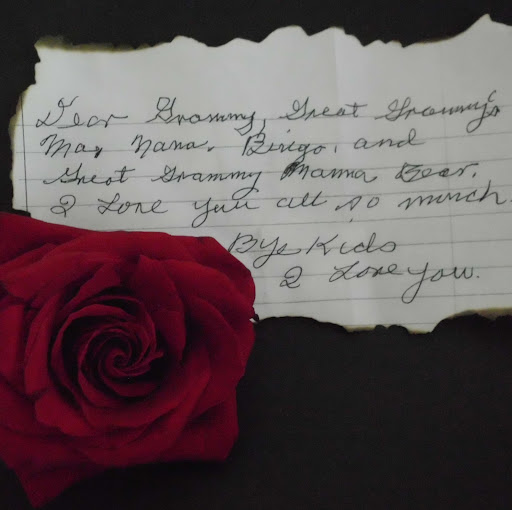 Dear Grammy, Great Grammy's
Ma, Nana. Bingo. and
Great Grammy Mama Bear.
I Love you all so munch.
Bye Kids
I Love you.